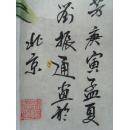 芳庚寅孟夏
刘振通画於
北京